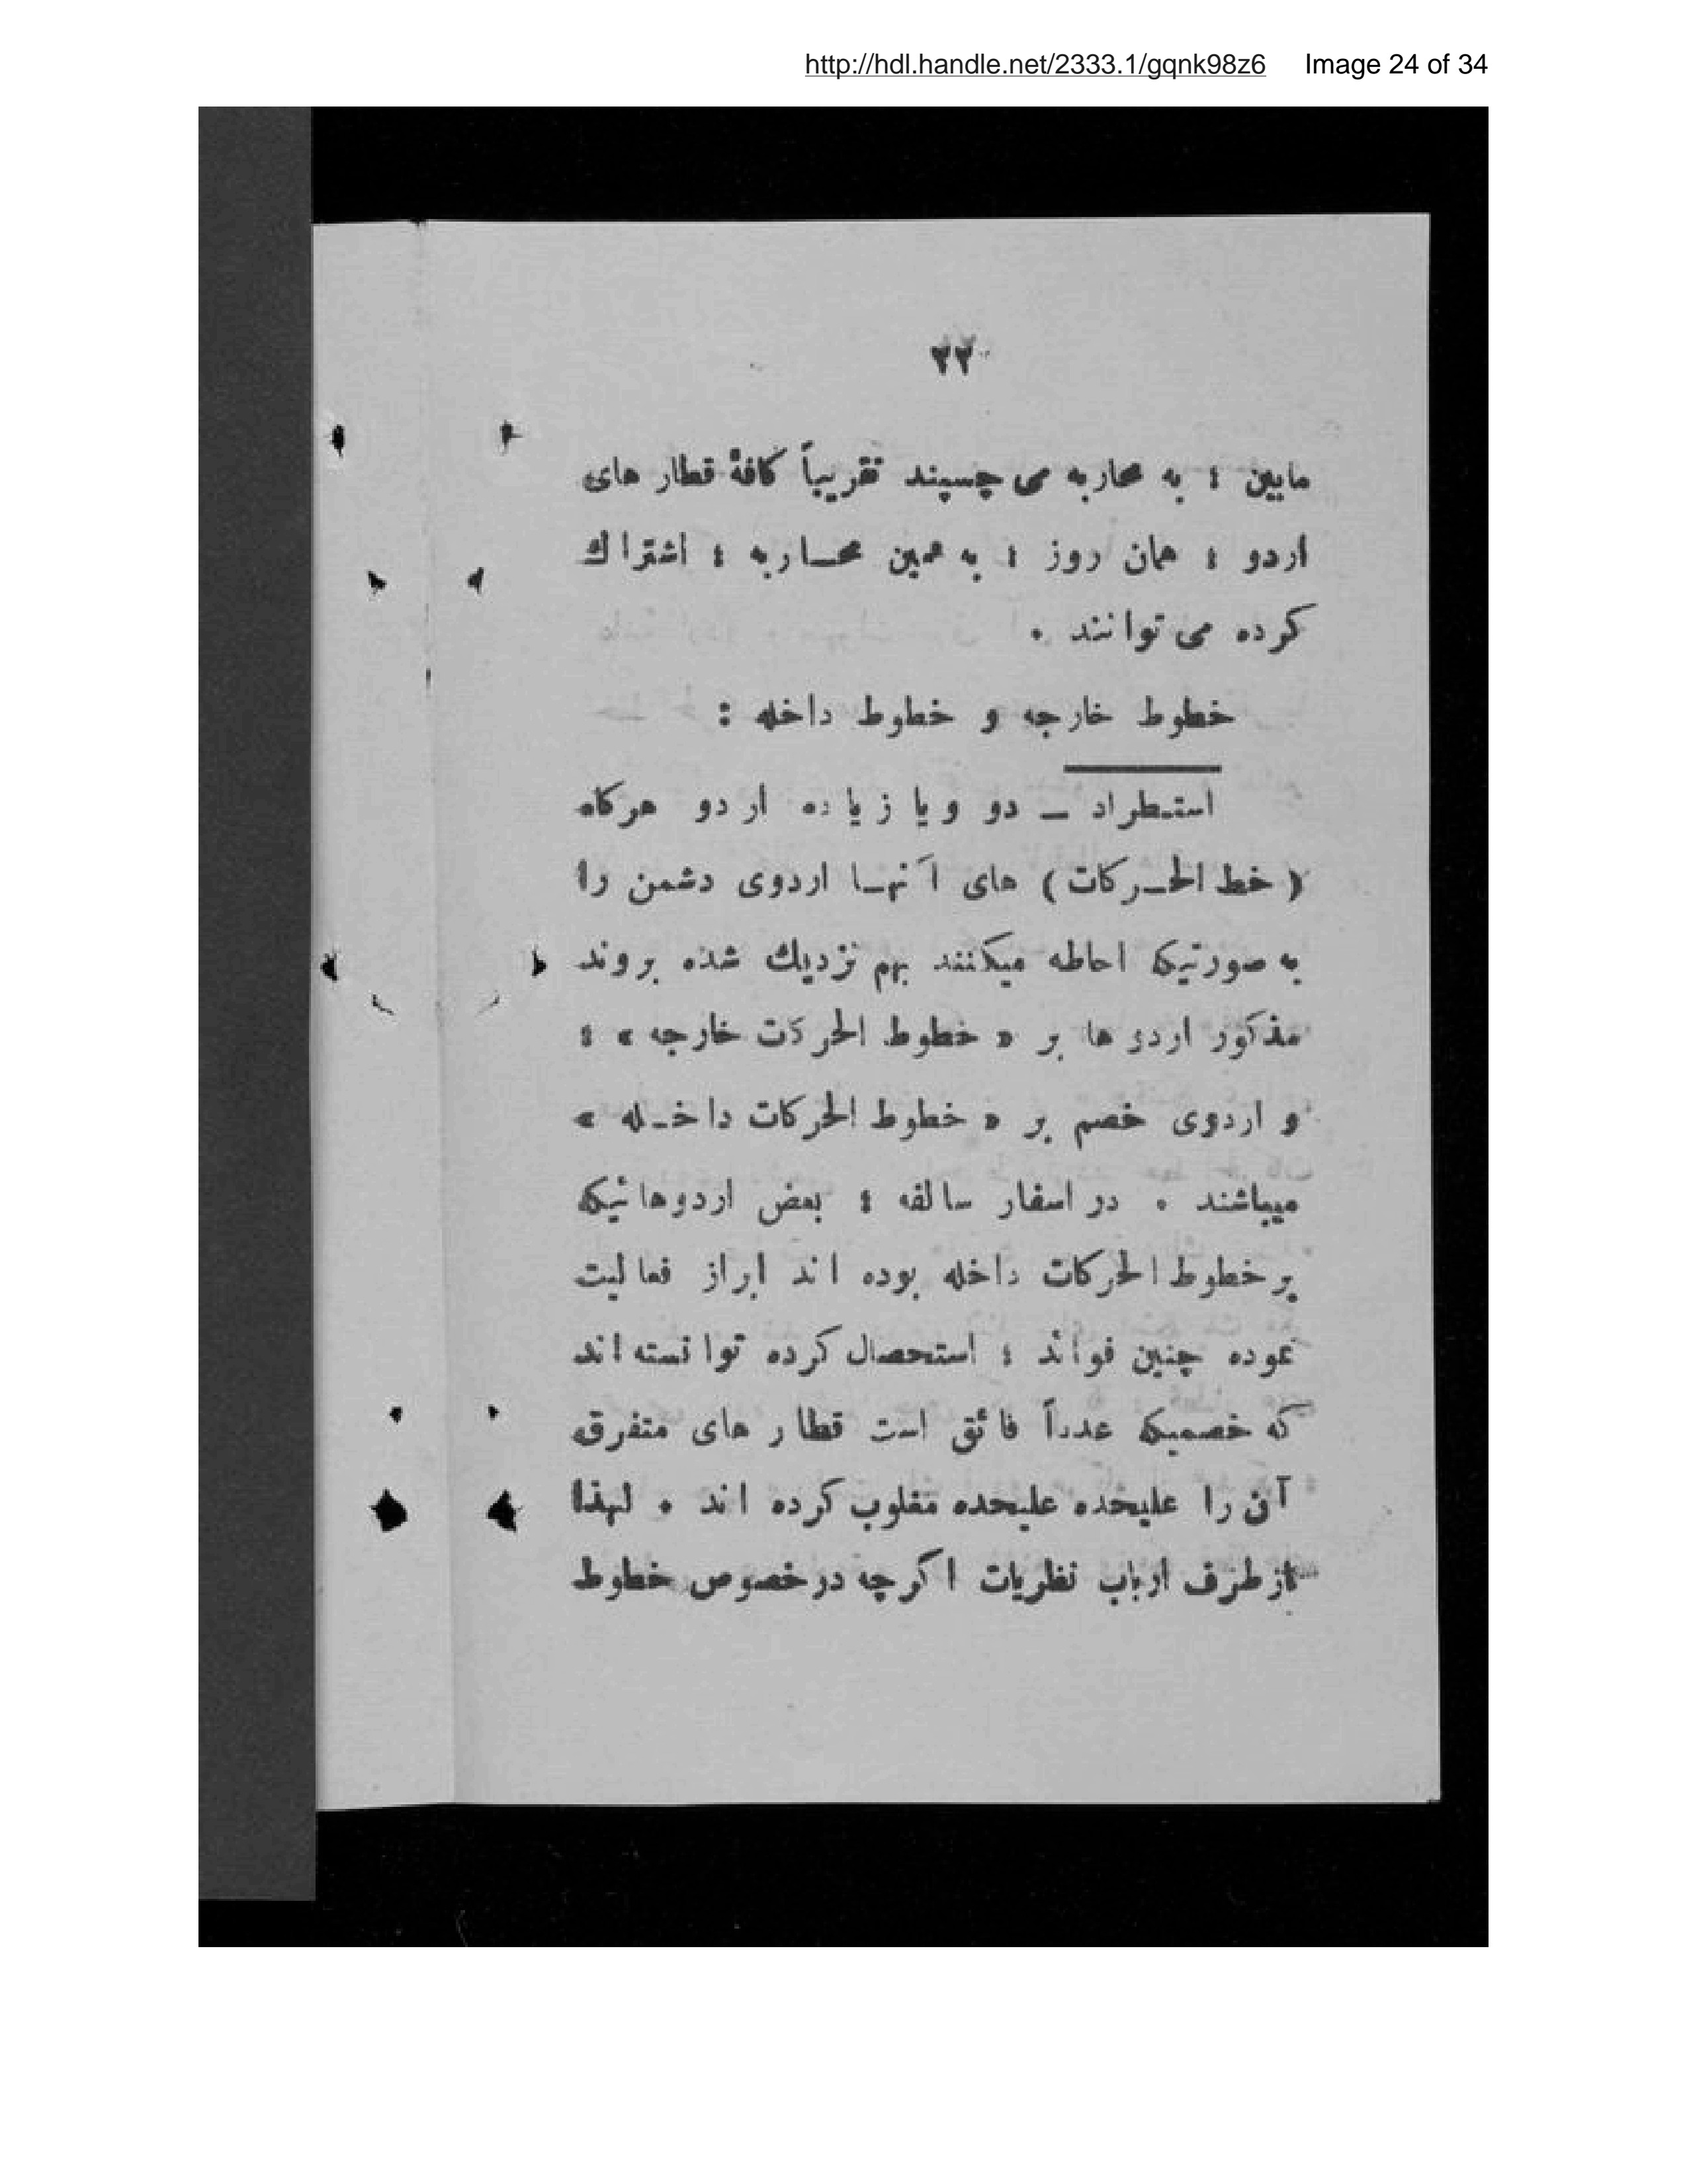 http://hdl.handle.net/2333.1/gqnk98z6 Image 24 of 34
٢٢
مابین ؛ به محاربه می چسپند تقریباً کافهٔ قطار های
اردو ؛ همان روز ؛ به همین محـاربه ؛ اشتراك
کرده می توانند .
خطوط خارجه و خطوط داخله :
استـطراد ــ دو ویا زیاده اردو هرکاه
( خط الحـرکات ) های آنهـا اردوی دشمن را
به صورتیکه احاطه میکنند بهم نزدیك شده بروند
مذکور اردو ها بر « خطوط الحرکات خارجه » ؛
و اردوی خصم بر « خطوط الحرکات داخـله »
میباشند . در اسفار سالفه ؛ بعض اردوهائیکه
بر خطوط الحرکات داخله بوده اند ابراز فعالیت
نموده چنین فوائد ؛ استحصال کرده توانسته اند
که خصمیکه عدداً فائق است قطار های متفرقه
آن را علیحده علیحده مغلوب کرده اند . لهذا
از طرف ارباب نظریات اکرچه در خصوص خطوط